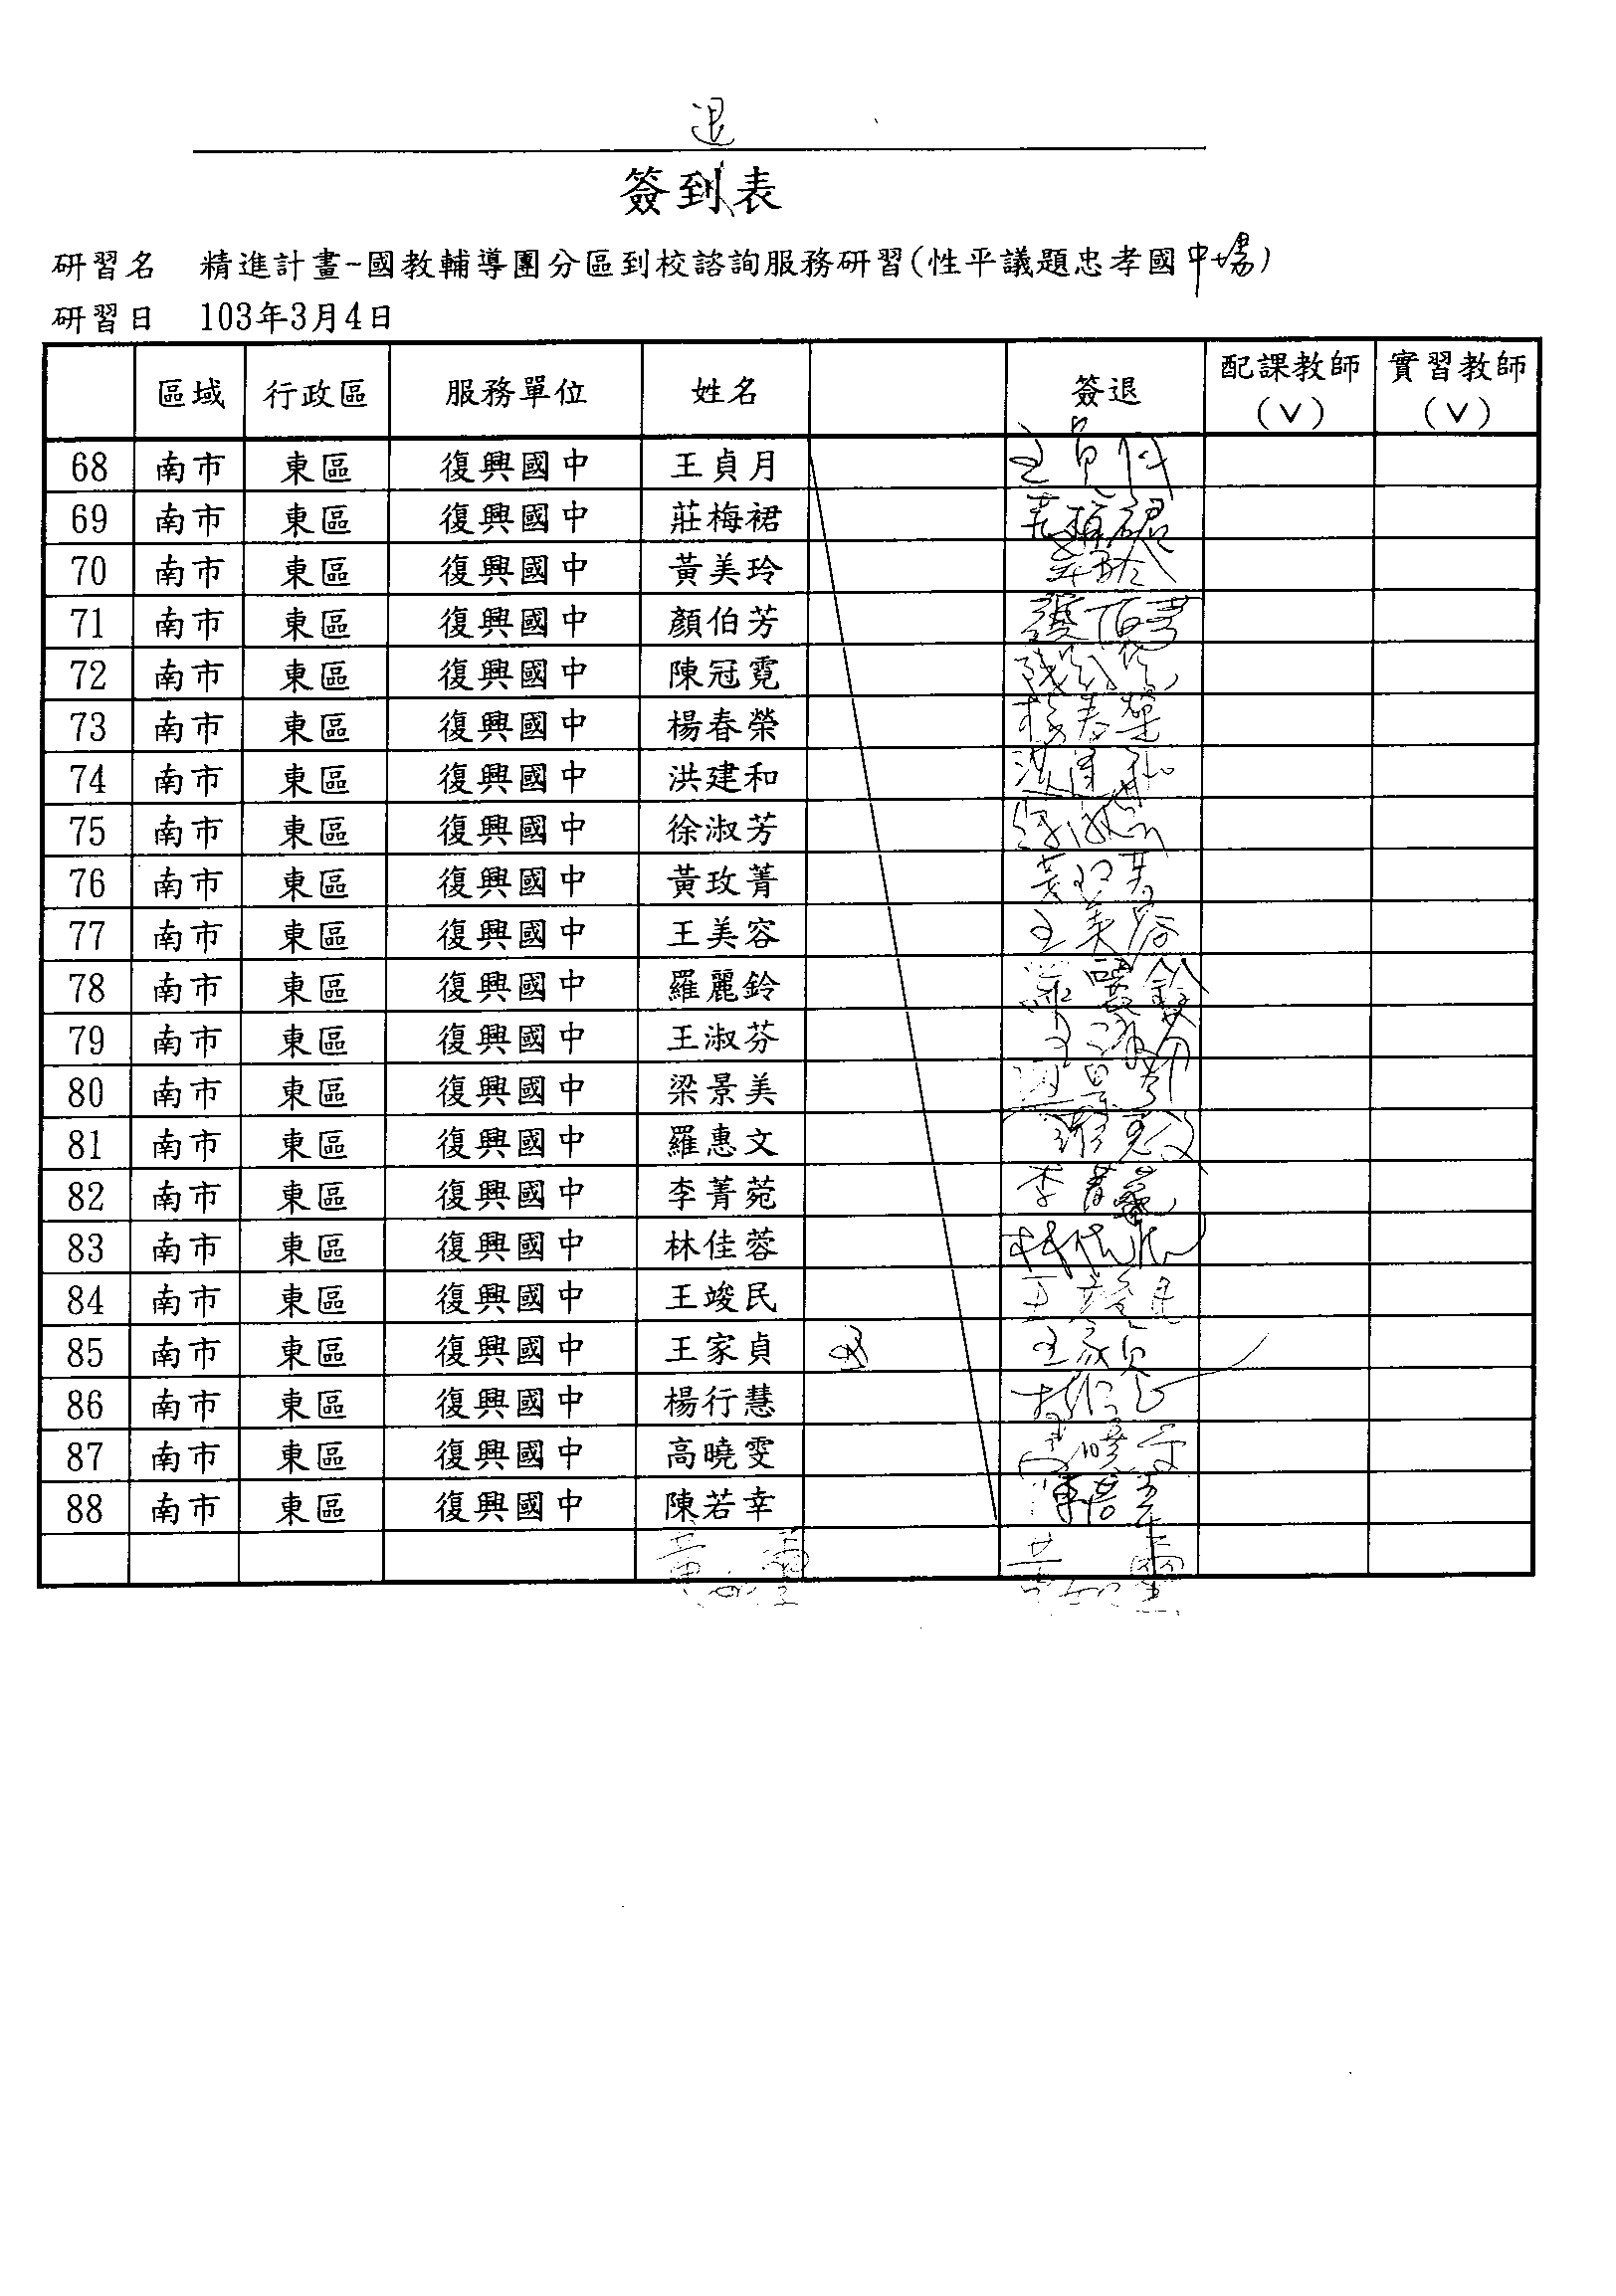 退
簽到表
研習名 精進計畫-國教輔導團分區到校諮詢服務研習(性平議題忠孝國中場)
研習日 103年3月4日
區域 行政區 服務單位 姓名 簽退 配課教師(V) 實習教師(V)
68 南市 東區 復興國中 王貞月 王貞月
69 南市 東區 復興國中 莊梅裙 莊梅裙
70 南市 東區 復興國中 黃美玲
71 南市 東區 復興國中 顏伯芳
72 南市 東區 復興國中 陳冠霓
73 南市 東區 復興國中 楊春榮 楊春榮
74 南市 東區 復興國中 洪建和 洪建和
75 南市 東區 復興國中 徐淑芳 徐淑芳
76 南市 東區 復興國中 黃玫菁 黃玫菁
77 南市 東區 復興國中 王美容 王美容
78 南市 東區 復興國中 羅麗鈴 羅麗鈴
79 南市 東區 復興國中 王淑芬 王淑芬
80 南市 東區 復興國中 梁景美 梁景美
81 南市 東區 復興國中 羅惠文 羅惠文
82 南市 東區 復興國中 李菁菀 李菁菀
83 南市 東區 復興國中 林佳蓉
84 南市 東區 復興國中 王竣民 王竣民
85 南市 東區 復興國中 王家貞 王家貞
86 南市 東區 復興國中 楊行慧
87 南市 東區 復興國中 高曉雯 高曉雯
88 南市 東區 復興國中 陳若幸 陳若幸